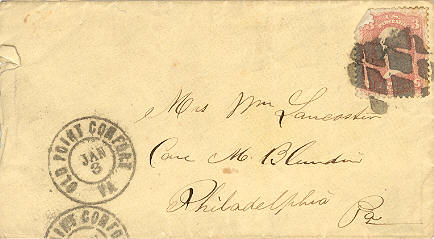 3 3
OLD POINT COMFORT
JAN
3
VA
Mrs Wm Lancaster
Care M. Blundin
Philadelphia
Pa
INT COMFO